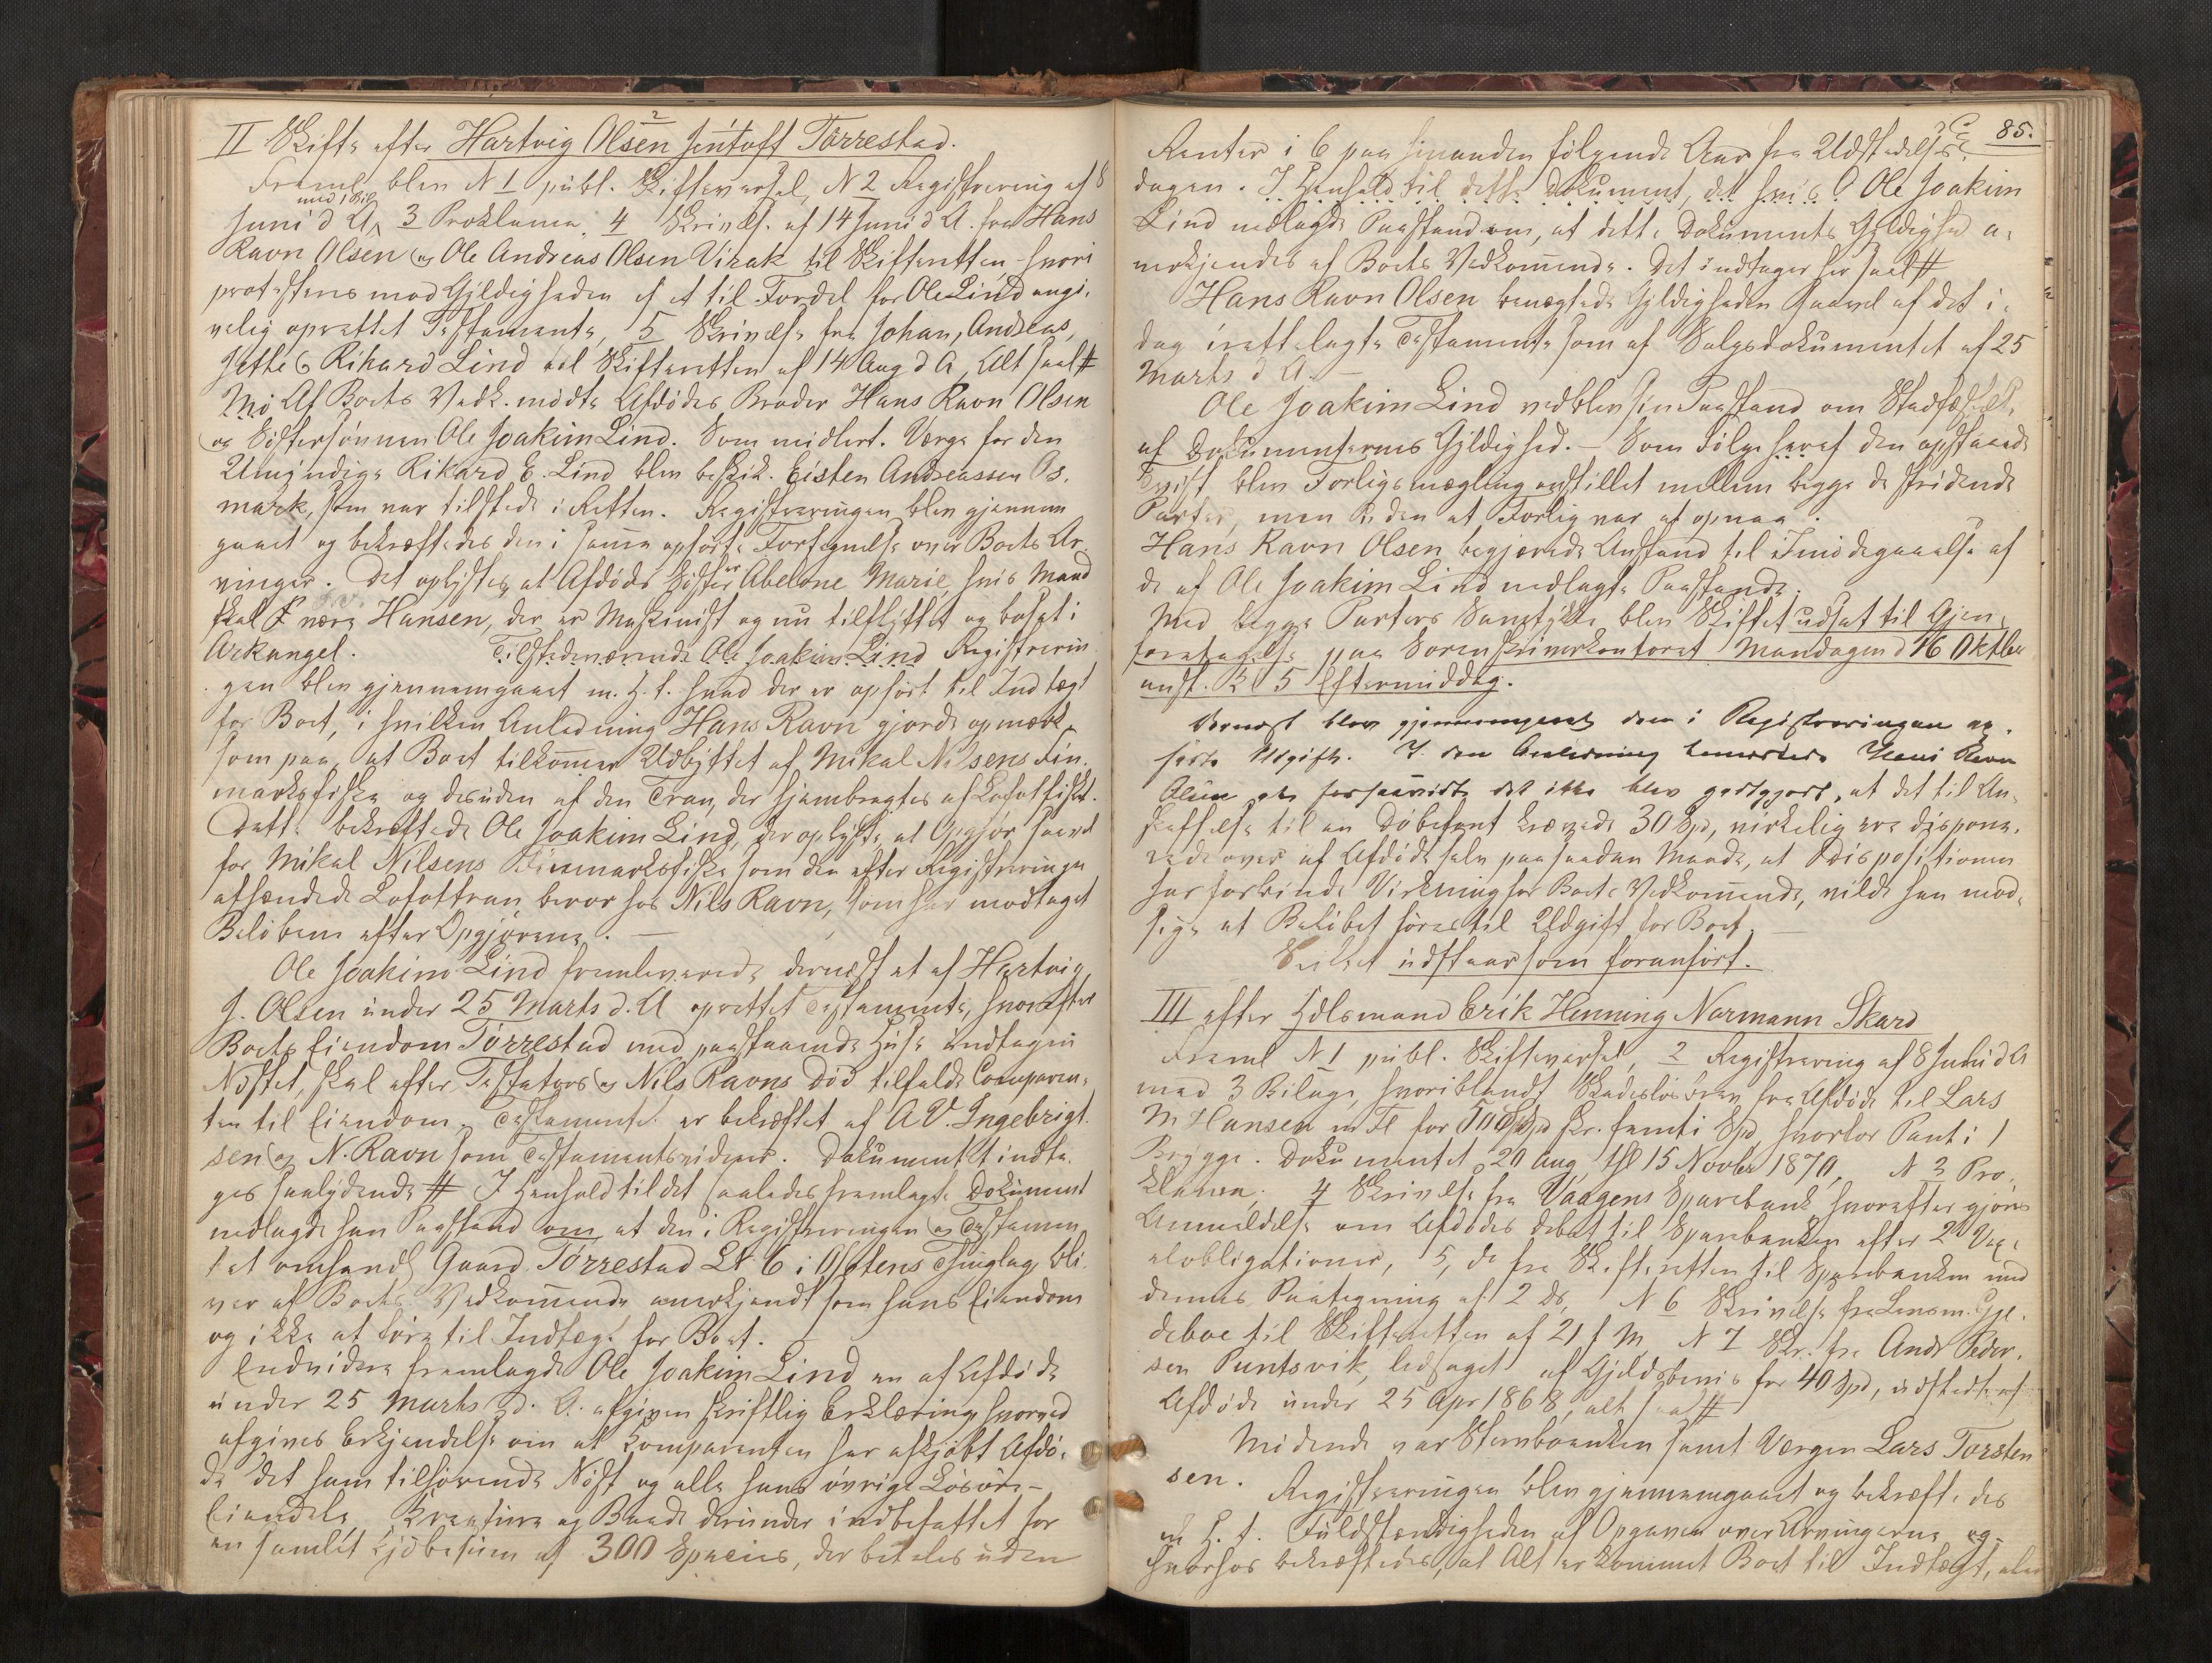 II Skifte efter Hartvig Olsen Jentoft Tørrestad.
2
Freml. blev N 1 publ. Skiftevarsel, N 2 Registrering af 8
Juni d A, 3 Proklama. 4 Skrivels. af 14 Juni d A. fra Hans
med 1 Bil
Ravn Olsen og Ole Andreas Olsen Virak til Skifteretten hvori
protesteres mod Gyldigheden af et til Fordel for Ole Lind angi-
velig oprettet Testamente, 5 Skrivelse fra Johan, Andreas,
Jette & Rikard Lind til Skifteretten af 14 Aug d A, Alt saal #
Mø Af Boets Vedk. mødte Afdødes Broder Hans Ravn Olsen
og Søstersønnen Ole Joakim Lind. Som midlert. Værge for den
Umyndige Rikard E. Lind blev beskik. Eisten Andreassen Os-
mark, som var tilstede i Retten. Registreringen blev gjennem
gaaet og bekræftedes den i samme opførte Fortegnelse over Boets Ar-
vinger. Det oplystes, at Afdødes Søster Abelone Marie, hvis Mand
skal være Hansen, der er Maskinist og nu tilflyttet og bosat i
Arkangel. Tilstedeværende Ole Joakim Lind Registrerin-
gen blev gjennemgaaet m. H. t. hvad der er opført til Indtægt
for Boet, i hvilken Anledning Hans Ravn gjorde opmærk-
som paa, at Boet tilkommer Udbyttet af Mikal Nilsens Fin-
marksfiske og desuden af den Tran, der hjembragtes af Lofotfisket.
Dette bekræftede Ole Joakim Lind, der oplyste, at Opgjør saavel
for Mikal Nilsens Finmarksfiske som den efter Registreringen
afhændede Lofottran beror hos Nils Ravn, som har modtaget
Beløbene efter Opgjørene. —
Ole Joakim Lind fremleverede dernæst et af Hartvig
J. Olsen under 25 Marts d. A oprettet Testamente, hvorefter
Boets Eiendom Tørrestad med paastaaende Huse undtagen
Nøstet, skal efter Testators og Nils Ravns Død tilfalde Comparen-
ten til Eiendom. Testamentet er bekræftet af A V. Ingebrigt-
sen og N. Ravn som Testamentsvidner. Dokumentet indta-
ges saalydende # I Henhold til det saaledes fremlagte Dokument
nedlagde han Paastand om, at den i Registreringen og Testamen-
tet omhandl. Gaard Tørrestad Lt 6 i Ofotens Thinglag, bli-
ver af Boets Vedkommende anerkjendt som hans Eiendom
og ikke at føre til Indtægt for Boet.
Endvidere fremlagde Ole Joakim Lind en af Afdøde
under 25 Marts d. A. afgiven skriftlig Erklæring, hvorved
afgives Erkjendelse om at Komparenten har afkjøbt Afdø-
de det ham tilhørende Nøst og alle hans øvrige Løsøre-
Eiendele, Kreature og Baade derunder indbefattet for
en samlet Kjøbesum af 300 Species, der betales uden
85.
Renter i 6 paa hinanden følgende Aar fra Udstedelses-
dagen. I Henhold til dette Dokument, det Ole Joakim
Lind nedlagde Paastand om, at dette Dokuments Gyldighed a-
nerkjendes af Boets Vedkommende. Det indtages her saal #
Hans Ravn Olsen benægtede Gyldigheden saavel af det i-
dag irettelagte Testamente som af Salgsdokumentet af 25
Marts d A. —
Ole Joakim Lind vedblev sin Paastand om Stadfæstels.
af Dokumenternes Gyldighed. — Som Følge heraf den opstaaede
Tvist blev Forligsmægling anstillet mellem begge de stridende
Parter, men uden at Forlig var at opnaa.
Hans Ravn Olsen begjærede Anstand til Imødegaaelse af
de af Ole Joakim Lind nedlagte Paastande.
Med begge Parters Samtykke blev Skiftet udsat til Gjen-
foretagelse paa Sorenskriverkontoret Mandagen d 16 Oktber
anst. Kl 5 Eftermiddag.
Dernæst blev gjennemgaaet den i Registreringen an-
førte Udgift. I den Anledning bemærkede Hans Ravn
Olsen at forsaavidt det ikke blev godtgjort, at det til An-
skaffelse til en Døbefont krævede 30 Spd, virkelig var dispone-
rede over af Afdøde selv paa saadan Maade, at Dispositionen
har forbindende Virkning for Boets Vedkommende, vilde han mod-
sige at Beløbet føres til Udgift for Boet. —
Skiftet udstaar som foranført.
III efter Hdlsmand Erik Henning Normann Skard
Freml N 1 publ. Skiftevarsel, 2 Registrering af 8 Juni d A
med 3 Bilage, hvoriblandt Skadesløsbrev fra Afdøde til Lars
M Hansen m Fl for Spd skr. femti Spd, hvorfor Pant i 1
Brygge. Dokumentet 20 Aug, thl 15 Novber 1870, N 3 Pro-
klama. 4 Skrivelse fra Vaagens Sparebank hvorefter gjøres
Anmeldelse om Afdødes Debet til Sparebanken efter 2 Vex-
elobligationer, 5, do fra Skifteretten til Sparebanken med
dennes Paategning af 2 ds, N 6 Skrivelse fra Lensm. Gjel-
deboe til Skifteretten af 21 f M, N 7 Skr. fra Andr Peder-
sen Puntsvik, ledsaget af Gjeldsbevis for 40 Spd, udstedt af
Afdøde under 25 Apr 1868, alt saal #
Mødende var Stervboenken samt Værgen Lars Torsten
sen. Registreringen blev gjennemgaaet og bekræftedes
m H. t. Fuldstændigheden af Opgaven over Arvingerne og
hvorhos bekræftedes, at Alt er kommet Boet til Indtægt,